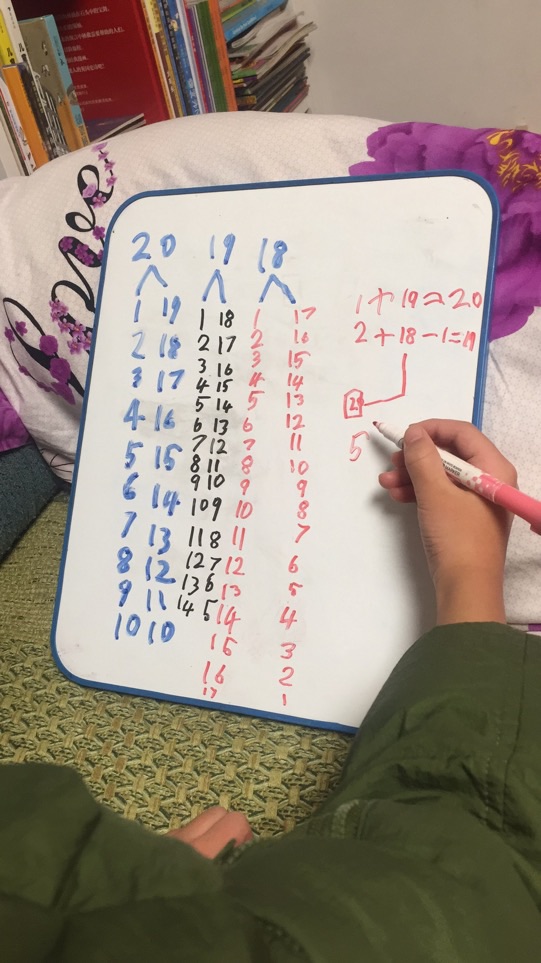 20 19 18
1 19 1 18 1 17
2 18 2 17 2 16
3 17 3 16 3 15
4 16 4 15 4 14
5 15 5 14 5 13
6 14 6 13 6 12
7 13 7 12 7 11
8 12 8 11 8 10
9 11 9 10 9 9
10 10 10 9 10 8
11 8 11 7
12 7 12 6
13 6 13 5
14 5 14 4
15 3
16 2
17 1
1+19=20
2+18-1=19
5